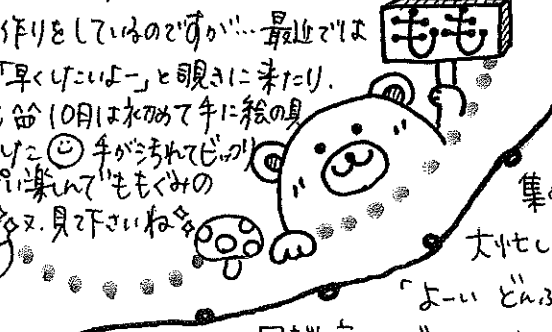 もも
作りをしているのですが…最近では
「早くしたいよー」と覗きに来たり、
10月は初めて手に絵の具
した 手が汚れてビックリ
楽しんで ももぐみの
又、見て下さいね
集
大忙し
「よーい どん